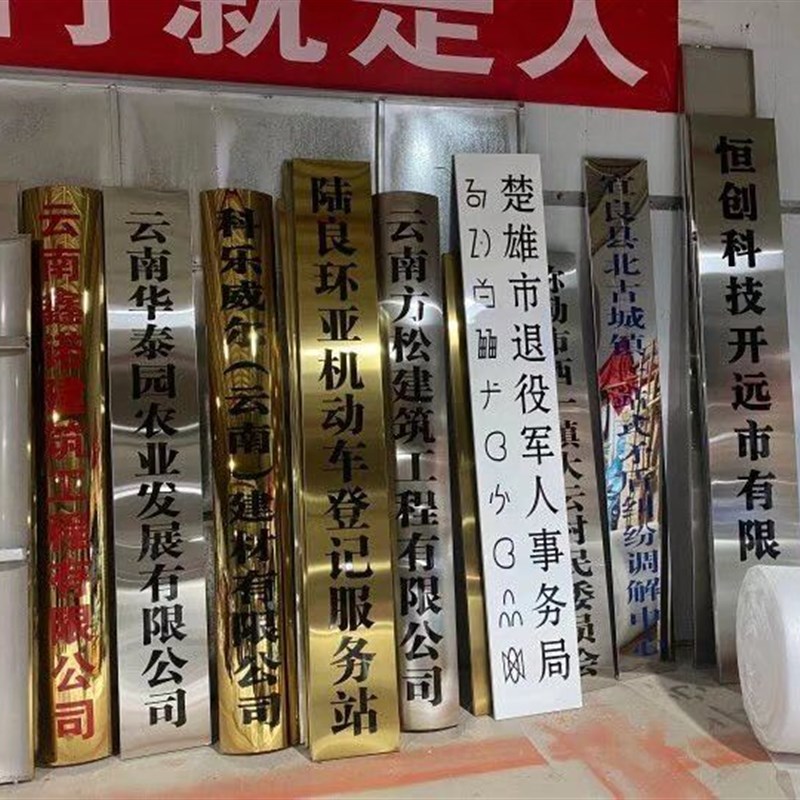 行就是人
云南鑫
建筑工程有限公司
云南华泰园农业发展有限公司
科乐威尔（云南）建材有限公司
陆良环亚机动车登记服务站
云南方松建筑工程有限公司
楚雄市退役军人事务局
弥勒市西
镇大云村民委员会
宜良县北古城镇
矛盾纠纷调解中心
恒创科技开远市有限